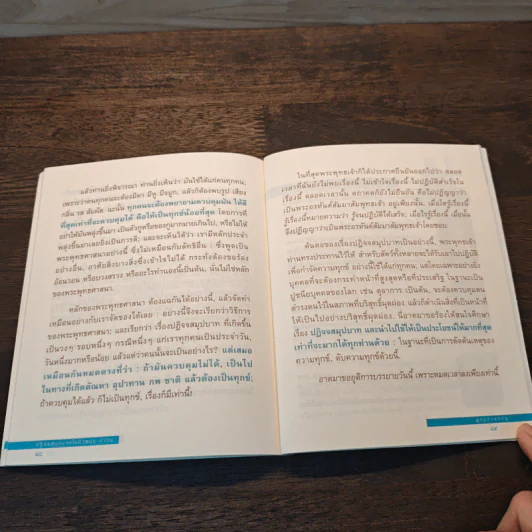 แล้วท่านยิ่งพิจารณา ท่านยิ่งเห็นว่า มันใช้ได้แก่คนทุกคน;
เพราะว่าคนทุกคนจะต้องมีตา มีหู มีจมูก; แล้วก็ต้องพบรูป เสียง
กลิ่น รส สัมผัส; ฉะนั้น ทุกคนจะต้องพยายามควบคุมมัน ให้ดี
ที่สุดเท่าที่จะควบคุมได้ คือให้เป็นทุกข์น้อยที่สุด โดยการที่
อย่าให้มันพลุ่งขึ้นมา เป็นตัวกูหรือของกูมากมายเกินไป, หรือไม่ให้
พลุ่งขึ้นมาเลยยิ่งเป็นการดี; และจะเห็นได้ว่า เรามีหลักประจำ
พระพุทธศาสนาอย่างนี้ ซึ่งไม่เหมือนกับลัทธิอื่น : ซึ่งพูดเป็น
อย่างอื่น. อาศัยสิ่งบางสิ่งซึ่งเข้าใจไม่ได้ กระทั่งต้องขอร้อง
อ้อนวอน หรือบวงสรวง หรืออะไรทำนองนี้เป็นต้น, นั้นไม่ใช่หลัก
ของพระพุทธศาสนา.
หลักของพระพุทธศาสนา ต้องแก้กันได้อย่างนี้, แล้วจัดทำ
เหมือนอย่างกับเราจัดของใช้ได้เลย : อย่างนี้จึงจะเรียกว่าวิธีการ
ของพระพุทธศาสนา; และเรียกว่า เรื่องปฏิจจสมุปบาท ที่เกิดขึ้น
เป็นวงๆ รอบหนึ่งๆ กรณีหนึ่งๆ แก่เราทุกคนเป็นประจำวัน,
วันหนึ่งมากหรือน้อย แล้วแต่ว่าคนนั้นจะเป็นอย่างไร? แต่เสมอ
เหมือนกันหมดตรงที่ว่า : ถ้ามันควบคุมไม่ได้, เป็นไป
ในทางที่เกิดตัณหา อุปาทาน ภพ ชาติ แล้วต้องเป็นทุกข์;
ถ้าควบคุมได้แล้ว ก็ไม่เป็นทุกข์, เรื่องก็มีเท่านี้!
ในที่สุดพระพุทธเจ้าก็ได้ประกาศยืนยันออกไปว่า: ตลอด
เวลาที่ฉันยังไม่พบเรื่องนี้ ไม่เข้าใจเรื่องนี้ ไม่ปฏิบัติสำเร็จใน
เรื่องนี้ ตลอดเวลานั้น ตถาคตก็ยังไม่ยืนยัน คือไม่ปฏิญญาว่า
เป็นพระอรหันต์สัมมาสัมพุทธเจ้า อยู่เพียงนั้น. เมื่อใดรู้เรื่องนี้
รู้เรื่องนี้หมายความว่า รู้จนปฏิบัติได้เสร็จ; เมื่อไรรู้เรื่องนี้ เมื่อนั้น
จึงปฏิญญาว่าเป็นพระอรหันต์สัมมาสัมพุทธเจ้าโดยชอบ.
ต้นตอของเรื่องปฏิจจสมุปบาทเป็นอย่างนี้, พระพุทธเจ้า
ท่านทรงประทานไว้ให้ สำหรับสัตว์ทั้งหลายจะได้รับเอาไปปฏิบัติ
เพื่อกำจัดความทุกข์ อย่างนี้ใช้ได้แก่ทุกคน; แต่โดยเฉพาะอย่างยิ่ง
บุคคลที่จะต้องกระทำหน้าที่สูงสุดหรือที่ประเสริฐ ในฐานะเป็น
ปูชนียบุคคลของโลก เช่น ตุลาการ เป็นต้น, จะต้องควบคุมตน
ดำรงตนไว้ในสภาพที่บริสุทธิ์ผุดผ่อง, แล้วก็ดำเนินสิ่งที่เป็นหน้าที่
ให้เป็นไปอย่างบริสุทธิ์ผุดผ่อง. นี่อาตมาขอร้องให้สนใจศึกษา
เรื่อง ปฏิจจสมุปบาท และนำไปใช้ให้เป็นประโยชน์ให้มากที่สุด
เท่าที่จะมากได้ทุกท่านด้วย : ในฐานะที่เป็นการตัดต้นเหตุของ
ความทุกข์, ดับความทุกข์ด้วยนี้.
อาตมาขอยุติการบรรยายวันนี้ เพราะหมดเวลาลงเพียงเท่านี้.